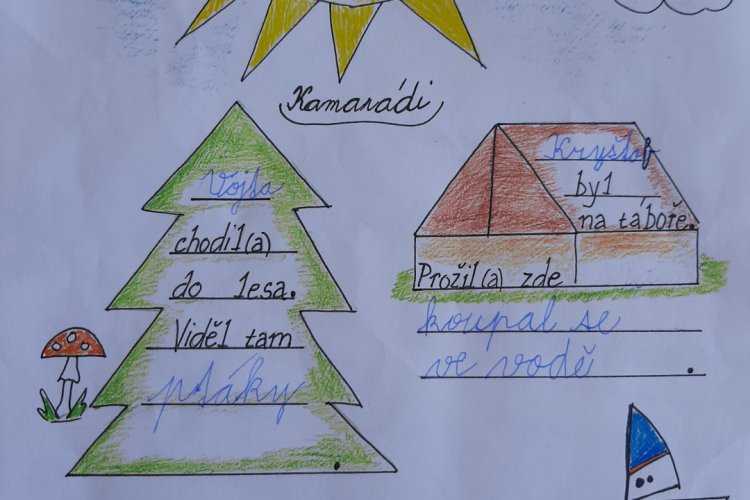 Kamarádi
Vojta
chodil(a)
do lesa.
Viděl tam
ptáky
.
Kryštof
byl
na táboře.
Prožil(a) zde
koupal se
ve vodě .